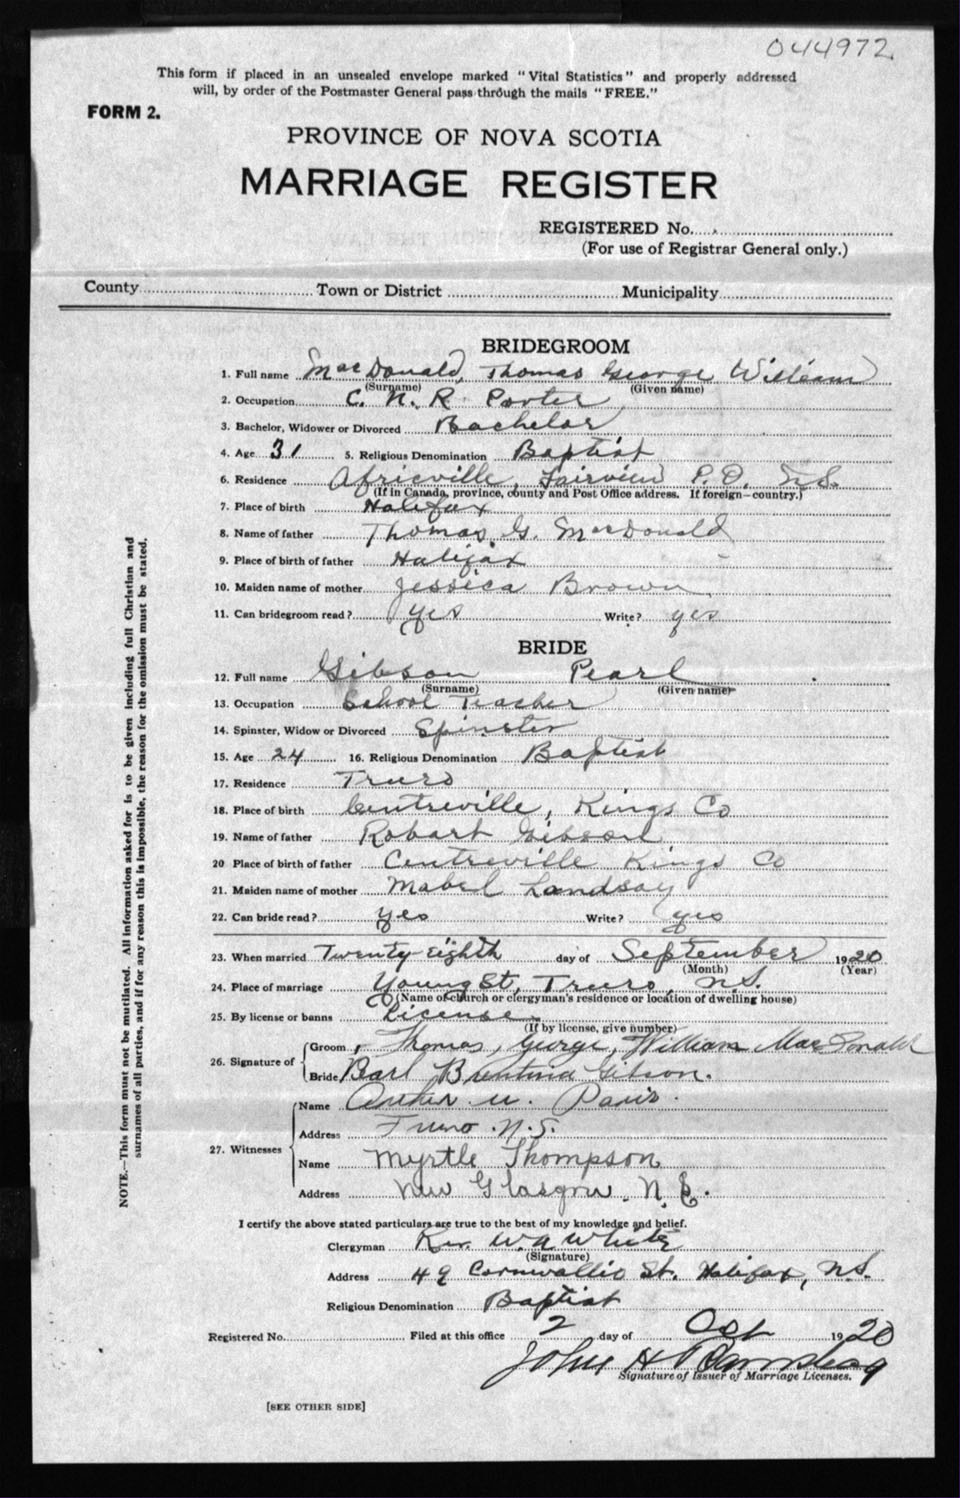 044972
This form if placed in an unsealed envelope marked "Vital Statistics" and properly addressed
will, by order of the Postmaster General pass through the mails "FREE."
FORM 2.
PROVINCE OF NOVA SCOTIA
MARRIAGE REGISTER
REGISTERED No.
(For use of Registrar General only.)
County Town or District Municipality
BRIDEGROOM
1. Full name MacDonald, Thomas George William
(Surname) (Given name)
2. Occupation C. N. R. Porter
3. Bachelor, Widower or Divorced Bachelor
4. Age 31 5. Religious Denomination Baptist
6. Residence Africville, Fairview P.O. N.S.
(If in Canada, province, county and Post Office address. If foreign—country.)
7. Place of birth Halifax
8. Name of father Thomas G. MacDonald
9. Place of birth of father Halifax
10. Maiden name of mother Jessica Brown
11. Can bridegroom read? yes Write? yes
BRIDE
12. Full name Gibson Pearl
(Surname) (Given name)
13. Occupation School Teacher
14. Spinster, Widow or Divorced Spinster
15. Age 24 16. Religious Denomination Baptist
17. Residence Truro
18. Place of birth Centreville, Kings Co
19. Name of father Robart Gibson
20 Place of birth of father Centreville Kings Co
21. Maiden name of mother Mabel Landsay
22. Can bride read? yes Write? yes
23. When married Twenty-Eighth day of September 1920
(Month) (Year)
24. Place of marriage Young St, Truro, N.S.
(Name of church or clergyman's residence or location of dwelling house)
25. By license or banns License
(If by license, give number)
26. Signature of
Groom Thomas, George, William MacDonald
Bride Pearl Gibson.
27. Witnesses
Name U. Paris.
Address Truro. N.S.
Name Myrtle Thompson
Address New Glasgow. N.S.
I certify the above stated particulars are true to the best of my knowledge and belief.
Clergyman Rev. W A White
(Signature)
Address 49 Cornwallis St. Halifax, N.S.
Religious Denomination Baptist
Registered No. Filed at this office 2 day of Oct 1920
John H
Signature of Issuer of Marriage Licenses.
[SEE OTHER SIDE]
NOTE.—This form must not be mutilated. All information asked for is to be given including full Christian and
surnames of all parties, and if for any reason this is impossible, the reason for the omission must be stated.